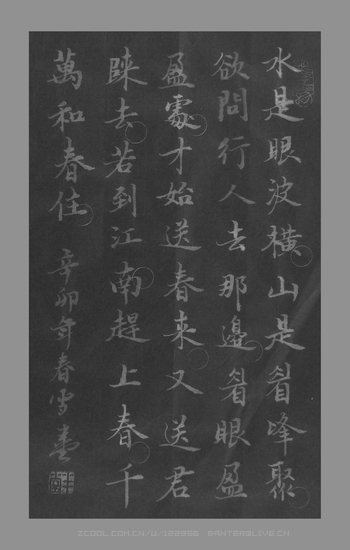 水是眼波橫山是眉峰聚
欲問行人去那邊眉眼盈
盈處才始送春来又送君
歸去若到江南趕上春千
萬和春住 辛卯年春雪
ZCOOL.COM.CN/U/122956